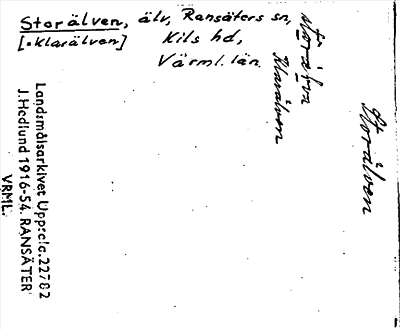 Storälven, älv, Ransäters sn,
[.Klarälven] Kils hd,
Värml. län.
Klarälven
Storälven
Landsmålsarkivet Uppsala. 22782
J. Hedlund 1916-54. RANSÄTER
VRML.